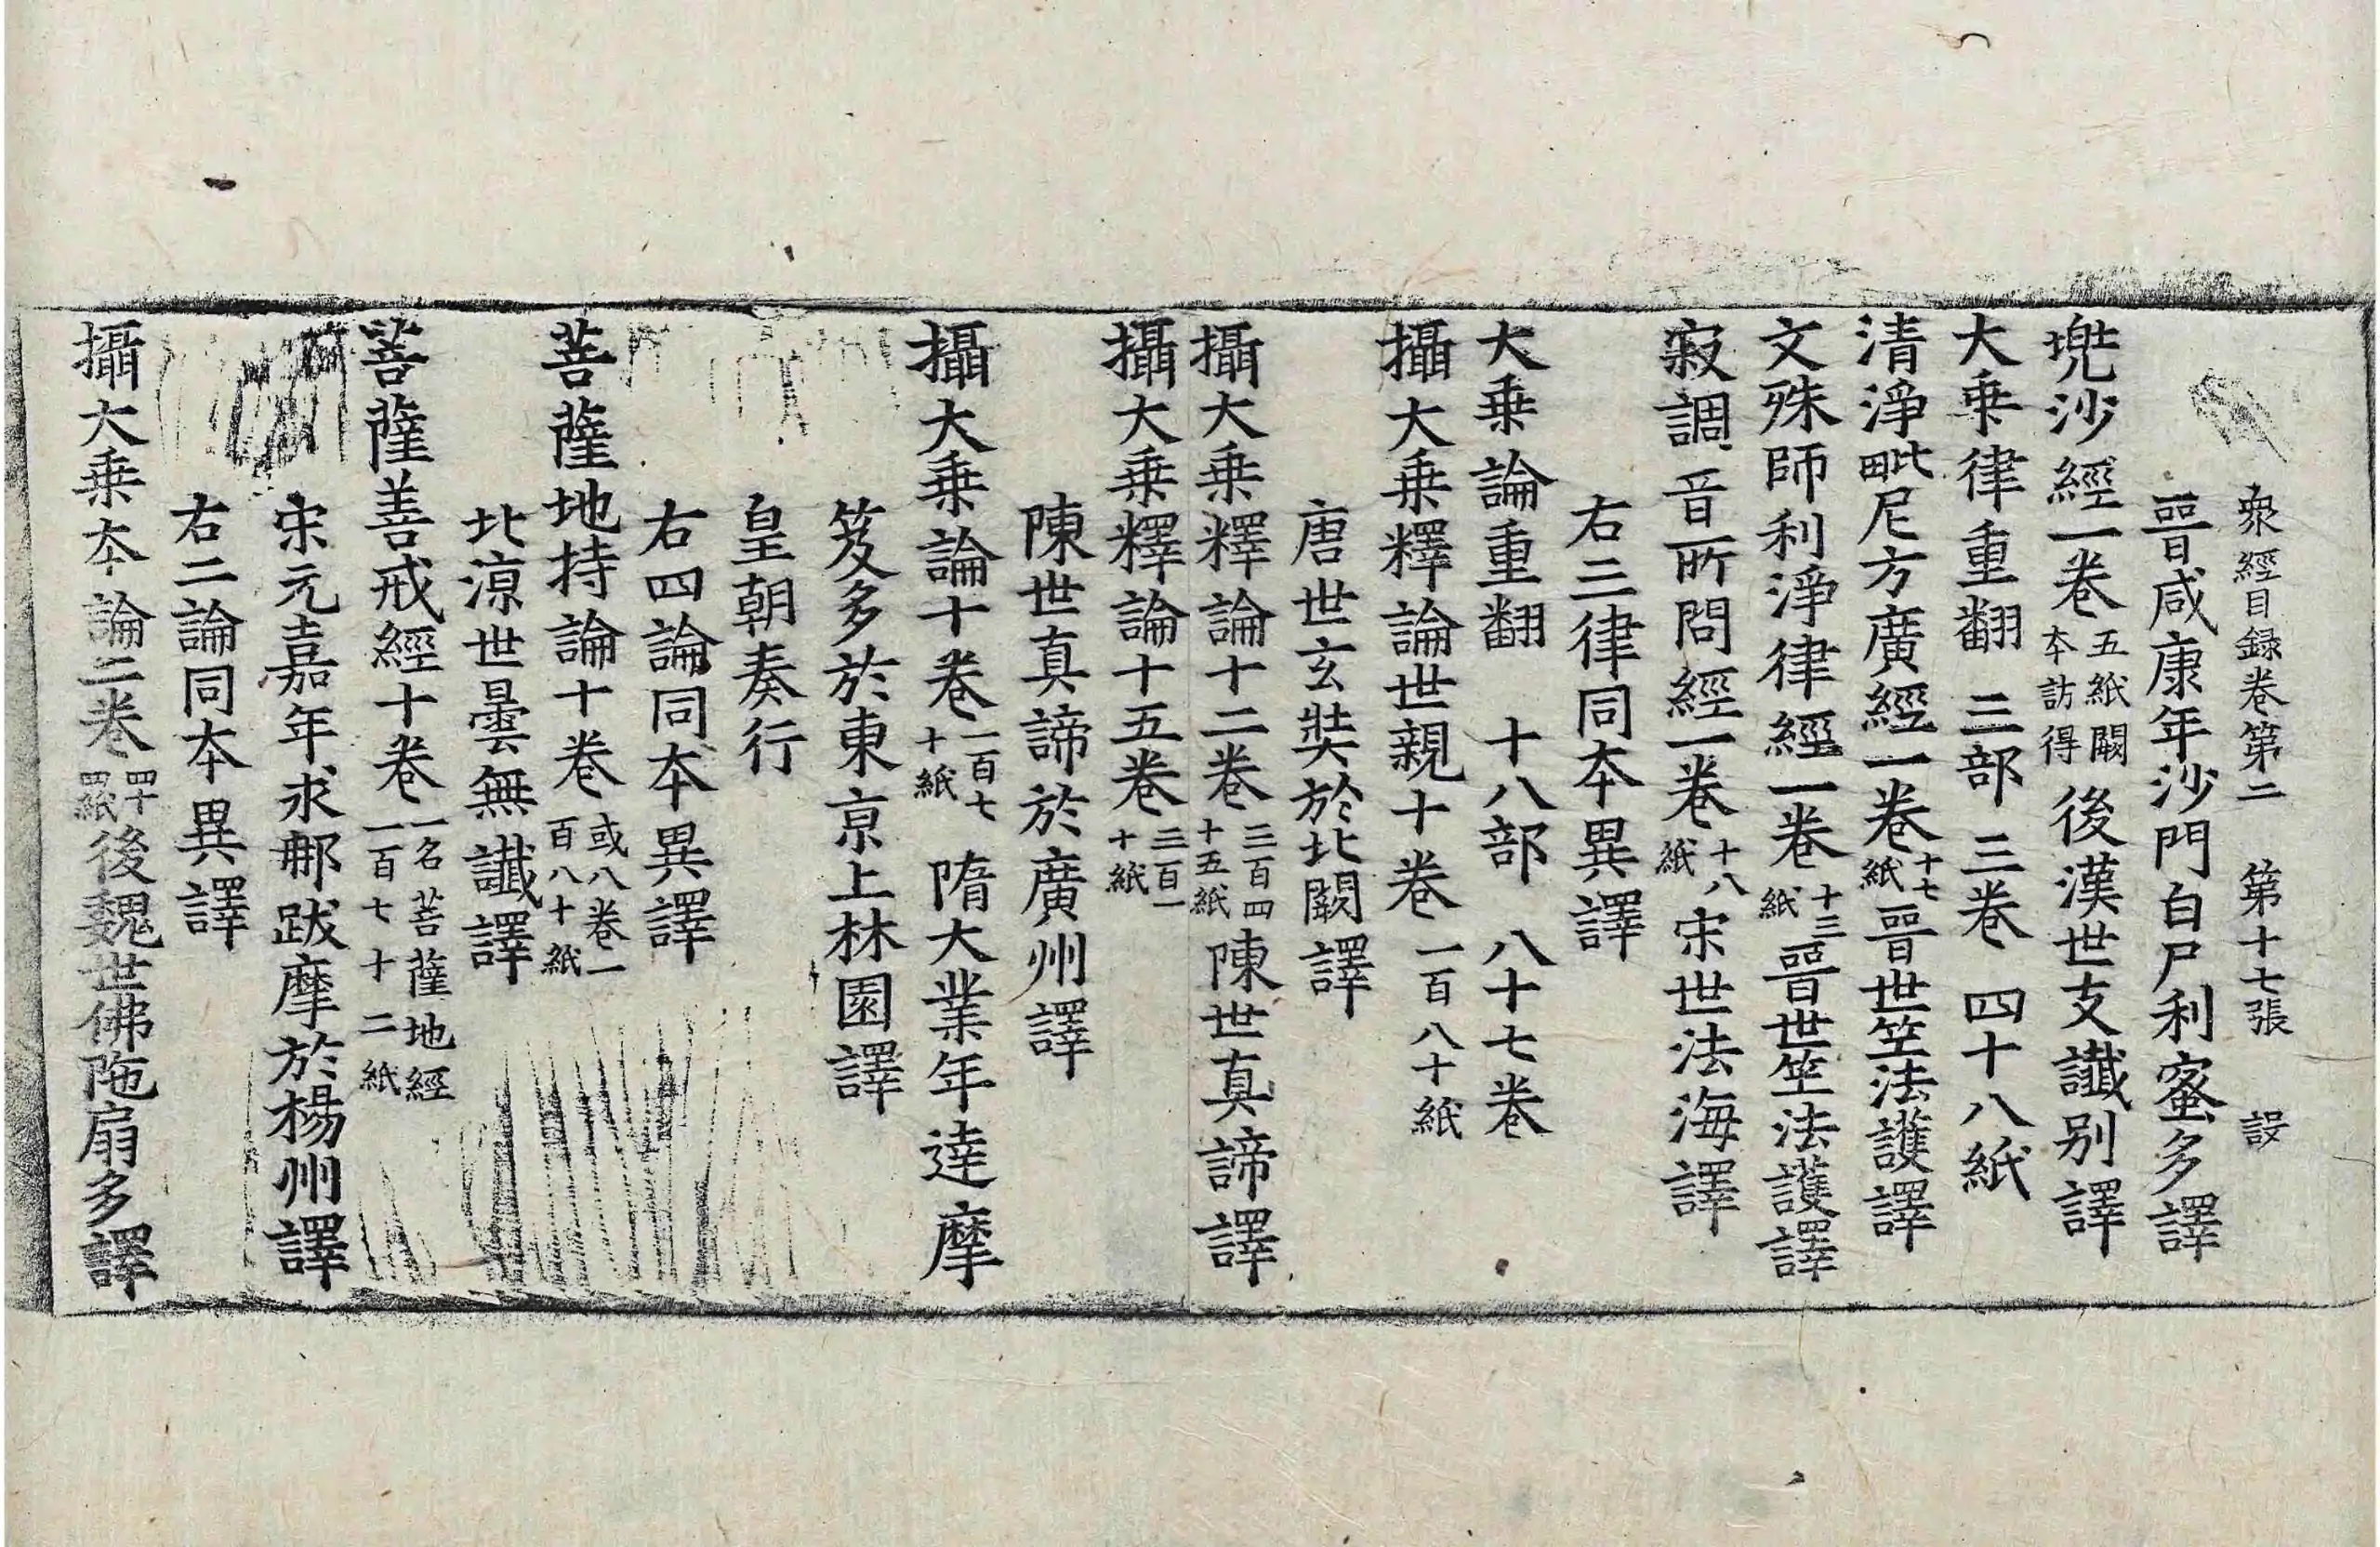 衆經目録卷第二 第十七張 設
晉咸康年沙門白尸利蜜多譯
兠沙經一卷五紙闕本訪得後漢世支讖别譯
大乗律重翻 三部 三卷 四十八紙
清淨毗尼方廣經一卷十七紙晉世竺法護譯
文殊師利淨律經一卷十三紙晉世竺法護譯
寂調音所問經一卷十八紙宋世法海譯
右三律同本異譯
大乗論重翻 十八部 八十七卷
攝大乗釋論世親十卷一百八十紙
唐世玄奘於北闕譯
攝大乗釋論十二卷三百四十五紙陳世真諦譯
攝大乗釋論十五卷三百一十紙
陳世真諦於廣州譯
攝大乗論十卷一百七十紙 隋大業年達摩
笈多於東京上林園譯
皇朝奏行
右四論同本異譯
菩薩地持論十卷或八卷一百八十紙
北涼世曇無讖譯
菩薩善戒經十卷一名菩薩地經一百七十二紙
宋元嘉年求那跋摩於楊州譯
右二論同本異譯
攝大乗本論二卷四十四紙後魏世佛陁扇多譯